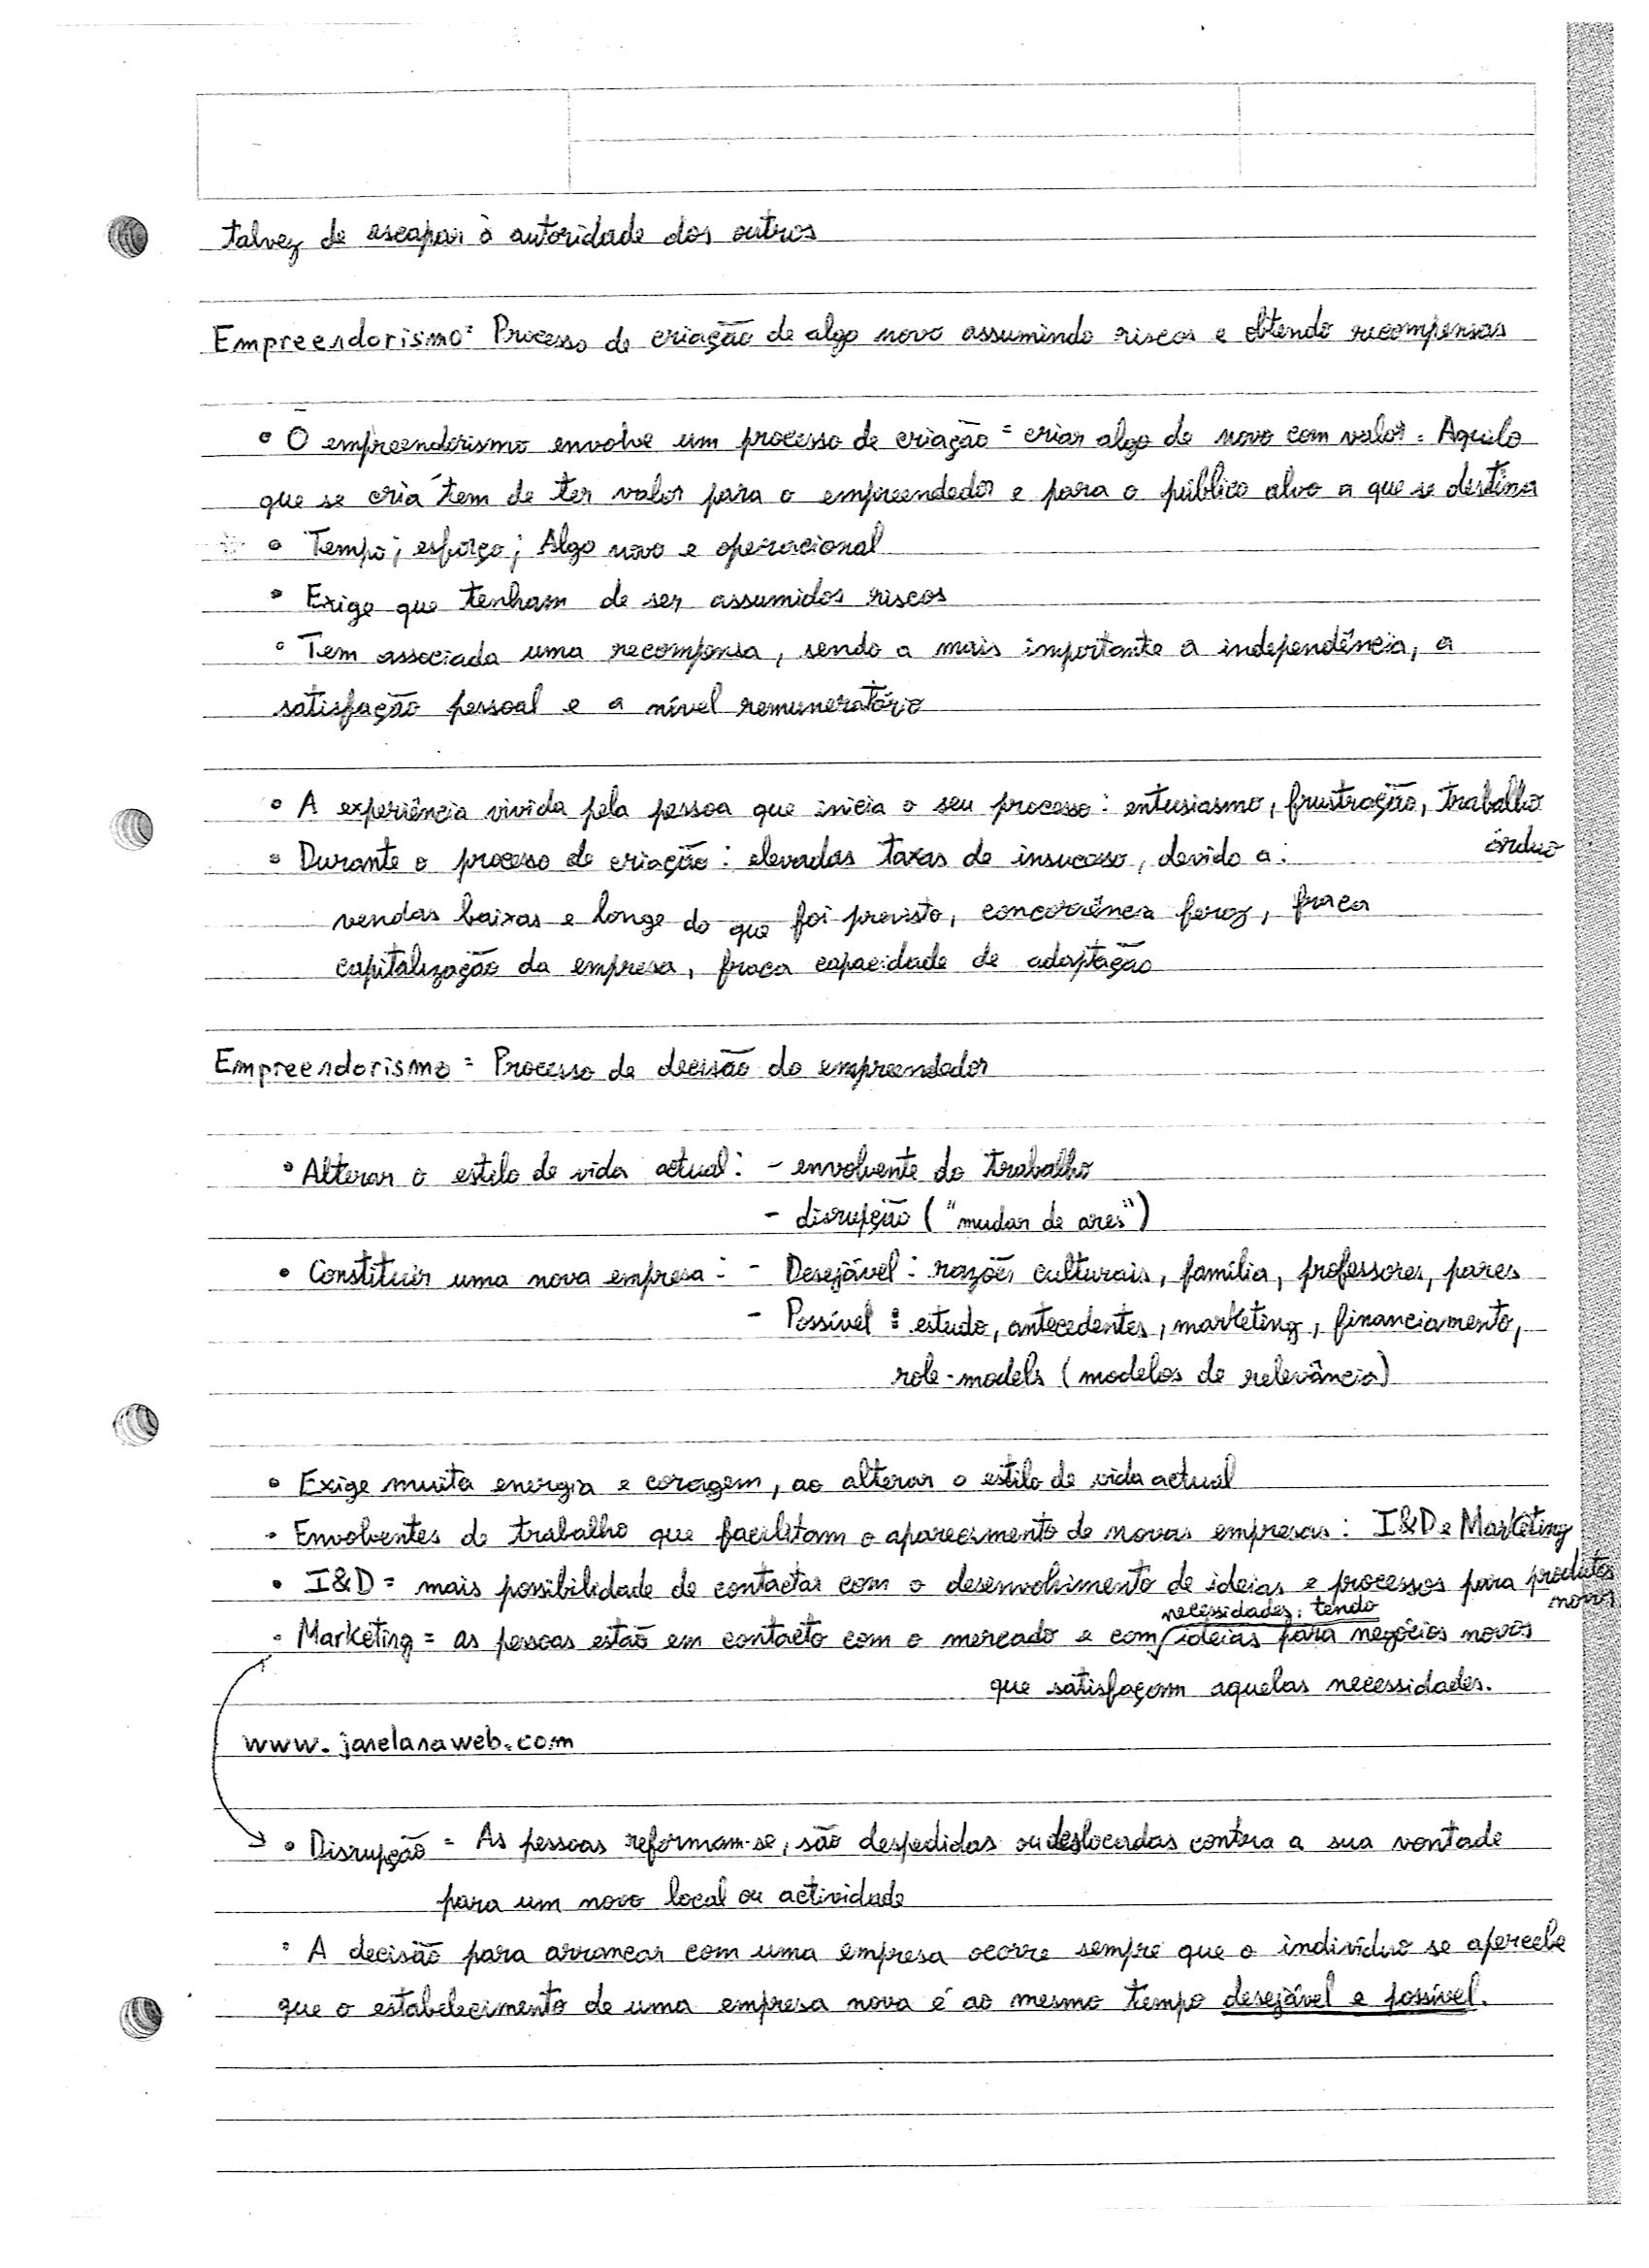 talvez de escapar à autoridade dos outros
Empreendorismo = Processo de criação de algo novo assumindo riscos e obtendo recompensas
• O empreendorismo envolve um processo de criação = criar algo de novo com valor. Aquilo
que se cria tem de ter valor para o empreendedor e para o público alvo a que se destina
• Tempo; esforço; Algo novo e operacional
• Exige que tenham de ser assumidos riscos
• Tem associada uma recompensa, sendo a mais importante a independência, a
satisfação pessoal e a nível remuneratório
• A experiência vivida pela pessoa que inicia o seu processo: entusiasmo, frustração, trabalho
árduo
• Durante o processo de criação: elevadas taxas de insucesso, devido a:
vendas baixas e longe do que foi previsto, concorrência feroz, fraca
capitalização da empresa, fraca capacidade de adaptação
Empreendorismo = Processo de decisão do empreendedor
• Alterar o estilo de vida actual: - envolvente do trabalho
- disrupção ("mudar de ares")
• Constituir uma nova empresa: - Desejável: razões culturais, família, professores, pares
- Possível: estudo, antecedentes, marketing, financiamento,
role-models (modelos de relevância)
• Exige muita energia e coragem, ao alterar o estilo de vida actual
• Envolventes de trabalho que facilitam o aparecimento de novas empresas: I&D e Marketing
• I&D = mais possibilidade de contactar com o desenvolvimento de ideias e processos para produtos
novos
necessidades; tendo
• Marketing = as pessoas estão em contacto com o mercado e com ideias para negócios novos
que satisfaçam aquelas necessidades.
www.janelanaweb.com
• Disrupção = As pessoas reformam-se, são despedidas ou deslocadas contra a sua vontade
para um novo local ou actividade
• A decisão para arrancar com uma empresa ocorre sempre que o indivíduo se apercebe
que o estabelecimento de uma empresa nova é ao mesmo tempo desejável e possível.